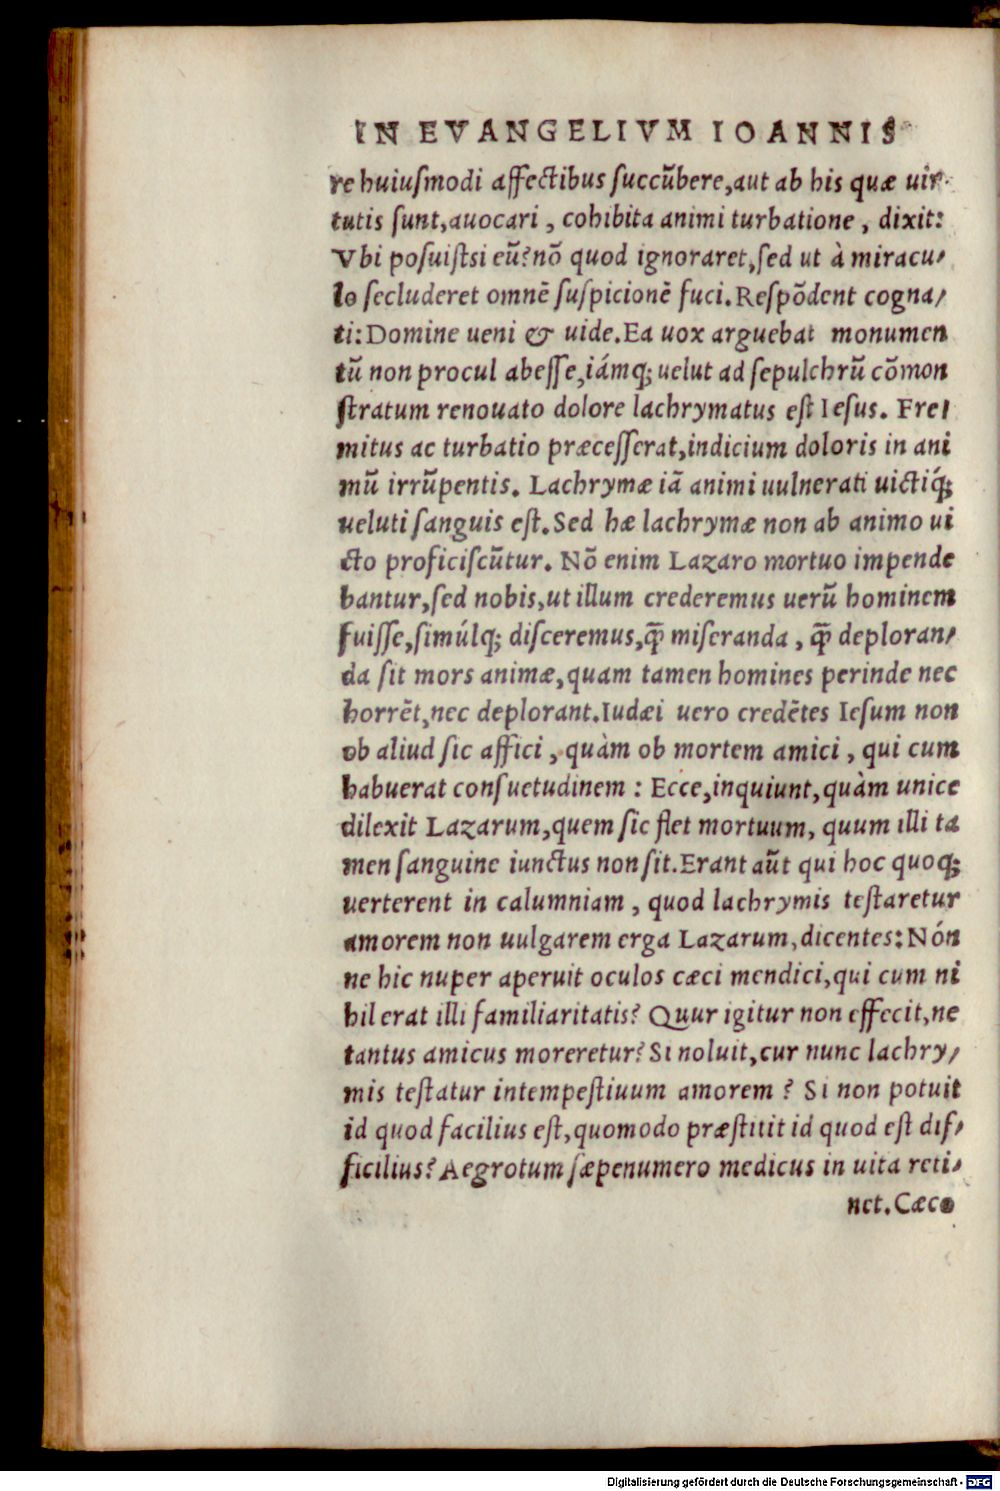 IN EVANGELIVM IOANNIS
re huiusmodi affectibus succũbere, aut ab his quæ uir-
tutis sunt, auocari, cohibita animi turbatione, dixit:
Vbi posuistsi eũ? nõ quod ignoraret, sed ut à miracu-
lo secluderet omnẽ suspicionẽ fuci. Respõdent cogna-
ti: Domine ueni & uide. Ea uox arguebat monumen
tũ non procul abesse, iámq; uelut ad sepulchrũ cõmon
stratum renouato dolore lachrymatus est Iesus. Fre-
mitus ac turbatio præcesserat, indicium doloris in ani
mũ irrũpentis. Lachrymæ iã animi uulnerati uictiq́;
ueluti sanguis est. Sed hæ lachrymæ non ab animo ui
cto proficiscũtur. Nõ enim Lazaro mortuo impende
bantur, sed nobis, ut illum crederemus uerũ hominem
fuisse, simúlq; disceremus, q̃ miseranda, q̃ deploran-
da sit mors animæ, quam tamen homines perinde nec
horrẽt, nec deplorant. Iudæi uero credẽtes Iesum non
ob aliud sic affici, quàm ob mortem amici, qui cum
habuerat consuetudinem: Ecce, inquiunt, quàm unice
dilexit Lazarum, quem sic flet mortuum, quum illi ta
men sanguine iunctus non sit. Erant aũt qui hoc quoq;
uerterent in calumniam, quod lachrymis testaretur
amorem non uulgarem erga Lazarum, dicentes: Nón
ne hic nuper aperuit oculos cæci mendici, qui cum ni
hil erat illi familiaritatis? Quur igitur non effecit, ne
tantus amicus moreretur? Si noluit, cur nunc lachry-
mis testatur intempestiuum amorem? Si non potuit
id quod facilius est, quomodo præstitit id quod est dif-
ficilius? Aegrotum sæpenumero medicus in uita reti-
net. Cæco
Digitalisierung gefördert durch die Deutsche Forschungsgemeinschaft - DFG